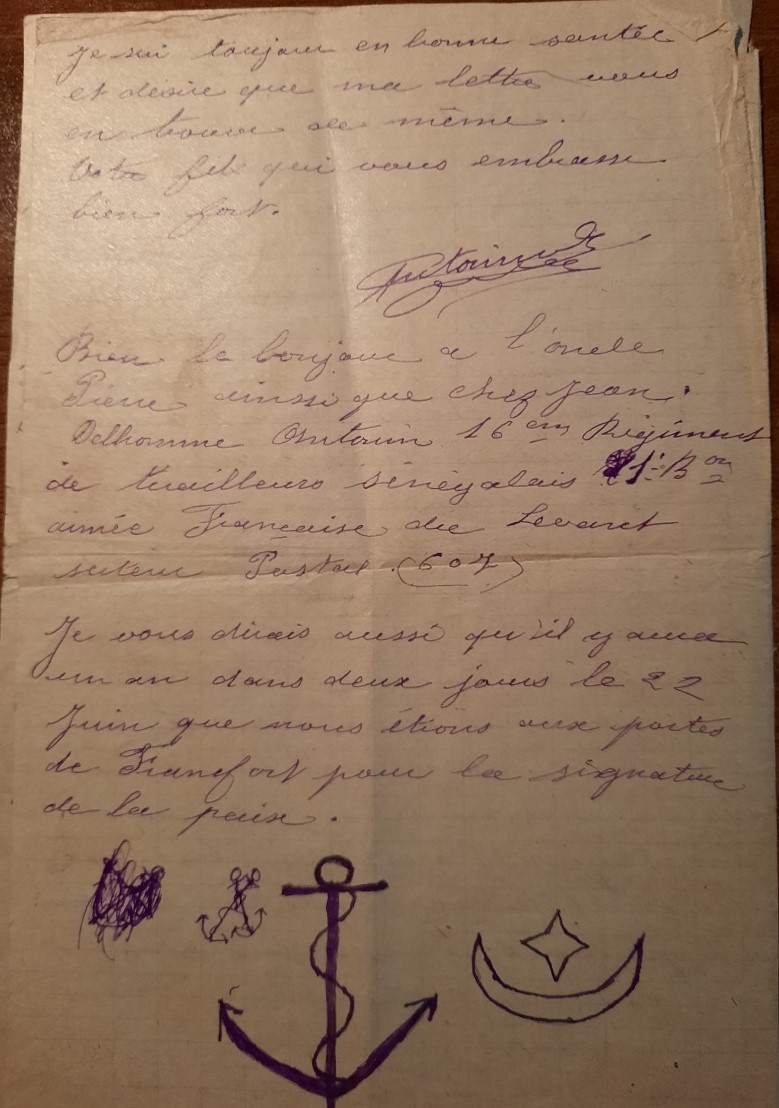 Je sui toujour en bonne santée
et désire que ma lettre vous
en trouve de même.
Votre fils qui vous embrasse
bien fort.
Antoine
Bien le bonjour a l'oncle
Pierre ainssi que chez Jean.
Delhomme Antoine 16 em Régiment
de tirailleurs sénégalais 1e Bon
armée Française du Levant
secteur Postal (607)
Je vous dirais aussi qu'il y aura
un an dans deux jours le 22
Juin que nous étions aux portes
de Francfort pour la signature
de la paix.